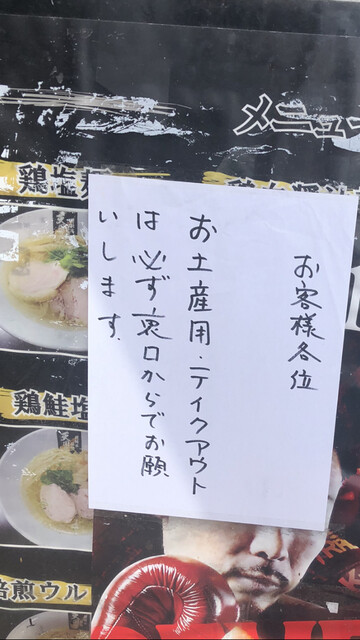 メニュー
鶏塩
お客様各位
お土産用・テイクアウト
は必ず裏口からでお願
いします.
鶏鮭塩
焙煎ウル